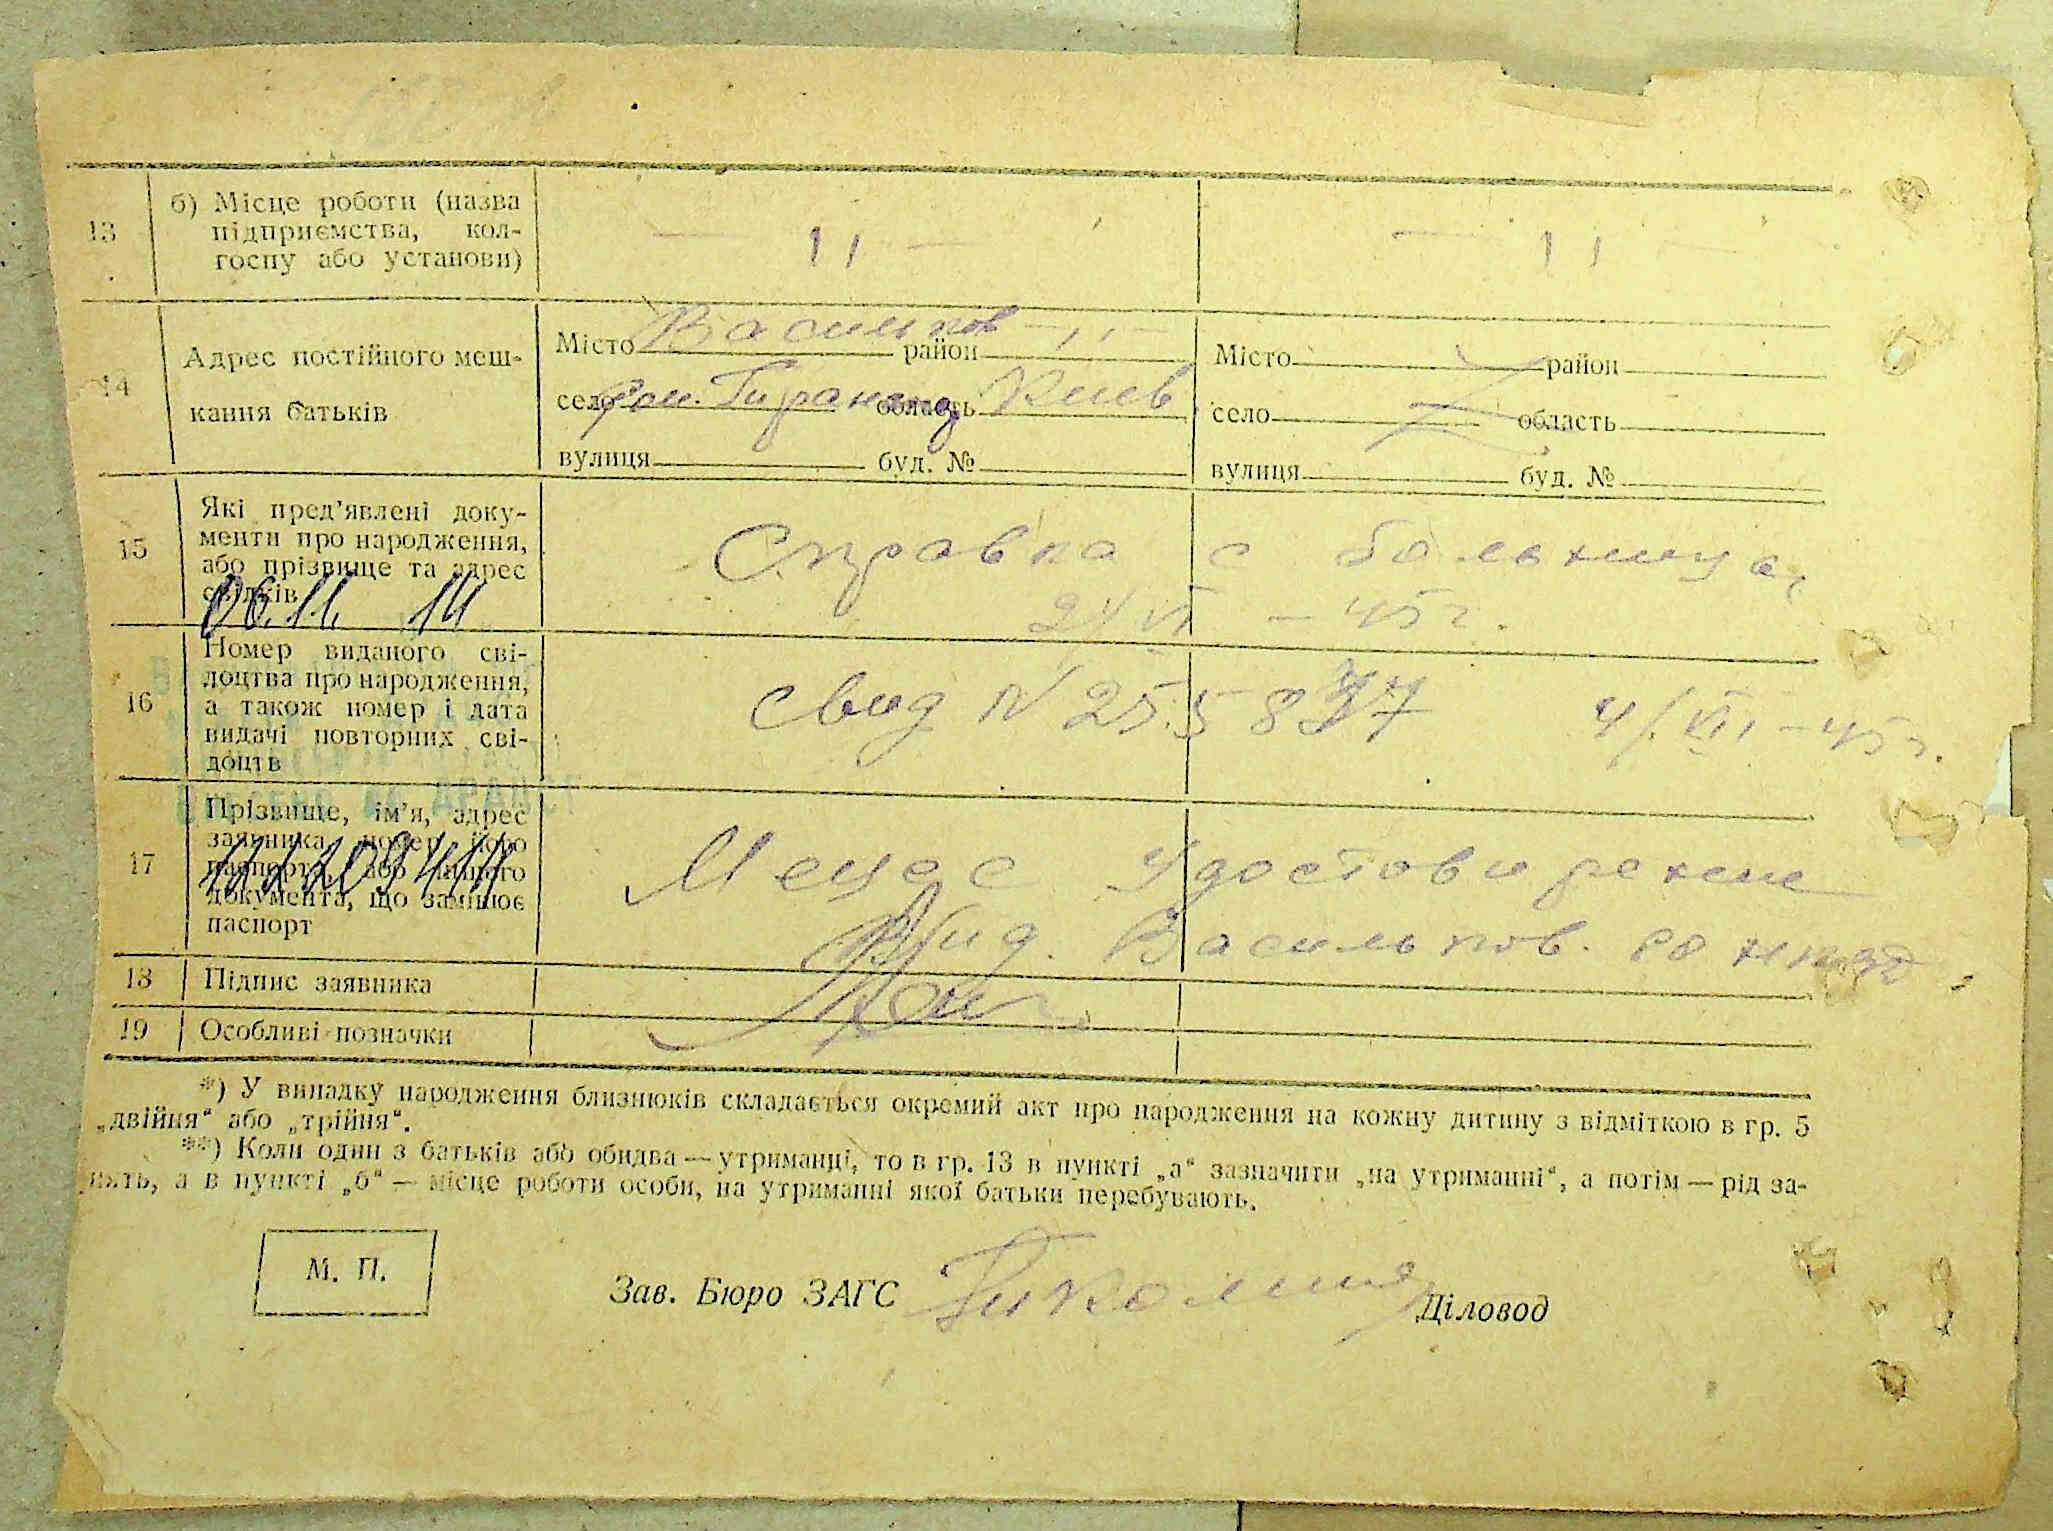 13 б) Місце роботи (назва
підприємства, кол-
госпу або установи)
— 11 — — 11 —
14 Адрес постійного меш-
кання батьків
Місто Васильков район — 11 — Місто район
село область Киев село область
вулиця буд. № вулиця буд. №
15 Які пред'явлені доку-
менти про народження,
або прізвище та адрес
свідків
Справка с больница,
24 VI — 45 г.
06.11. 14
16 Номер виданого сві-
доцтва про народження,
а також номер і дата
видачі повторних сві-
доцтв
Свид N 255837 4/VII — 45 г.
17 Прізвище, ім'я, адрес
заявника, номер його
паспорта, або іншого
документа, що замінює
паспорт
Удостовирение
Вид. Васильков.
18 Підпис заявника
19 Особливі позначки
*) У випадку народження близнюків складається окремий акт про народження на кожну дитину з відміткою в гр. 5
„двійня“ або „трійня“.
**) Коли один з батьків або обидва — утриманці, то в гр. 13 в пункті „а“ зазначити „на утриманні“, а потім — рід за-
нять, а в пункті „б“ — місце роботи особи, на утриманні якої батьки перебувають.
М. П.
Зав. Бюро ЗАГС Діловод